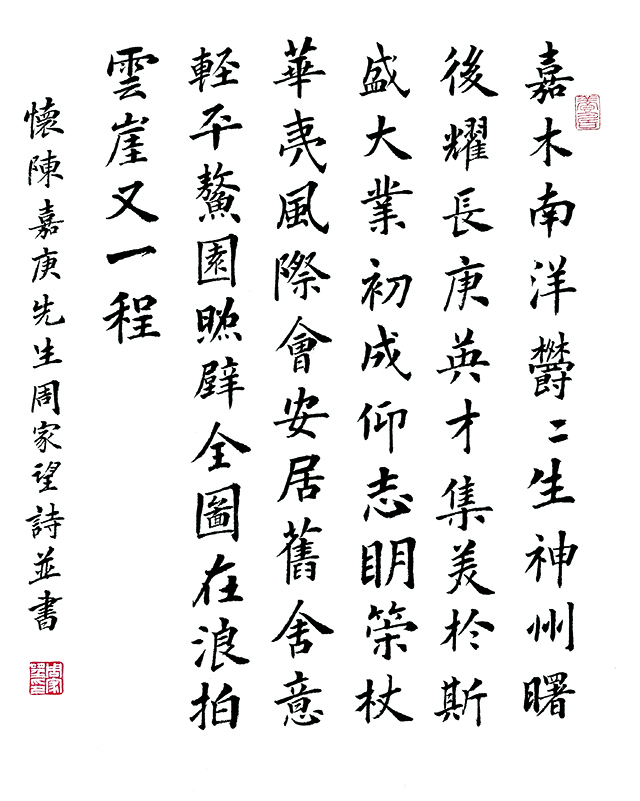 嘉木南洋鬱二生神州曙
後耀長庚英才集美於斯
盛大業初成仰志明築杖
華夷風際會安居舊舍意
輕平鰲園照壁全圖在浪拍
雲崖又一程
懷陳嘉庚先生周家望詩並書